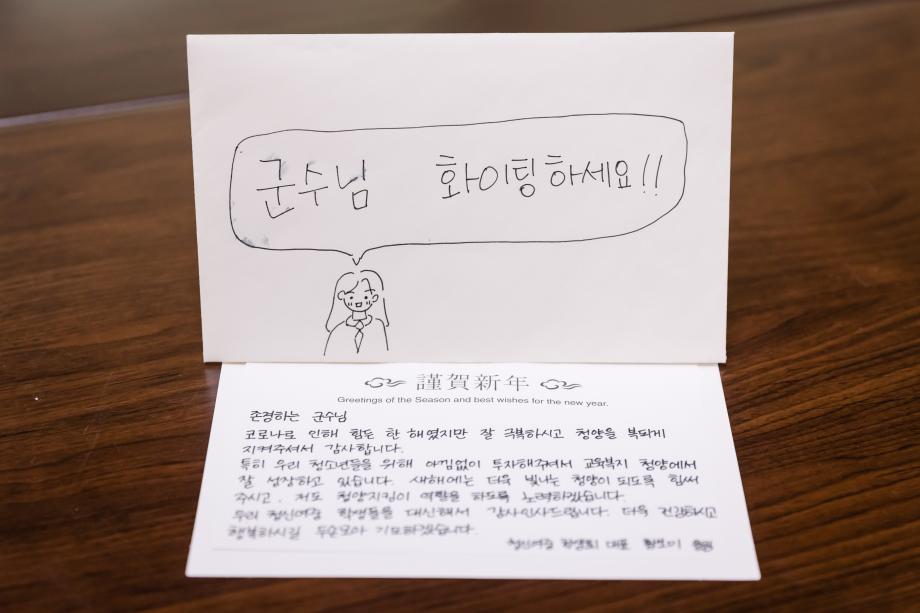 군수님 화이팅하세요!!
謹賀新年
Greetings of the Season and best wishes for the new year.
존경하는 군수님
코로나로 인해 힘든 한 해였지만 잘 극복하시고 청양을 복되게
지켜주셔서 감사합니다.
특히 우리 청소년들을 위해 아낌없이 투자해주셔서 교육복지 청양에서
잘 성장하고 있습니다. 새해에는 더욱 빛나는 청양이 되도록 힘써
주시고, 저도 청양지킴이 역할을 하도록 노력하겠습니다.
우리 청신여중 학생들을 대신해서 감사인사드립니다. 더욱 건강하시고
행복하시길 두손모아 기도하겠습니다.
청신여중 학생회 대표